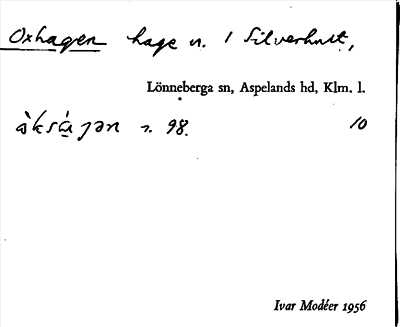 Oxhagen hage n. / Silverhult,
Lönneberga sn, Aspelands hd, Klm. l.
àksáɡən n. 98. 10
Ivar Modéer 1956